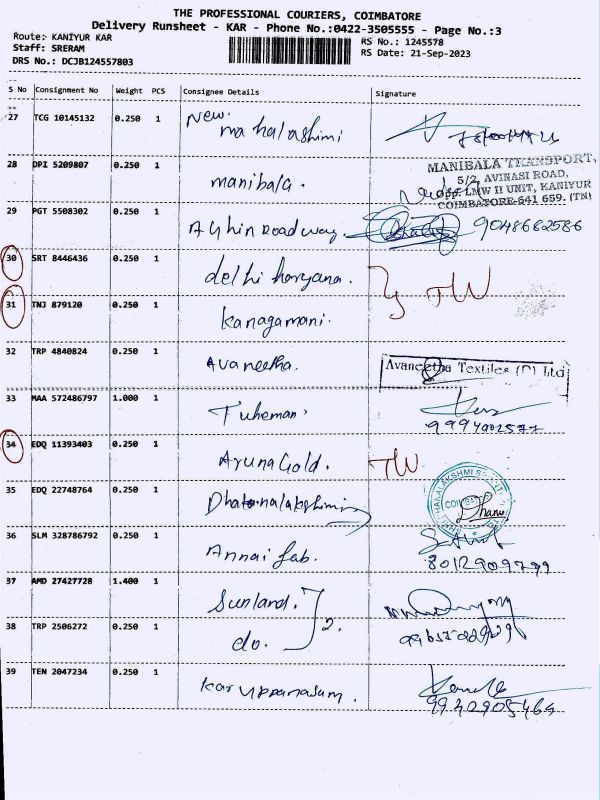 THE PROFESSIONAL COURIERS, COIMBATORE
Delivery Runsheet - KAR - Phone No.:0422-3505555 - Page No.:3
Route: KANIYUR KAR
RS No.: 1245578
Staff: SRERAM
RS Date: 21-Sep-2023
DRS No.: DCJB124557803
S No Consignment No Weight PCS Consignee Details Signature
27 TCG 10145132 0.250 1 New.
mahalashimi
28 DPI 5209807 0.250 1 manibala.
MANIBALA TRANSPORT,
5/2, AVINASI ROAD,
Opp. LMW II UNIT, KANIYUR
COIMBATORE-641 659. (TN)
29 PGT 5508302 0.250 1 Roadway. 9048682586
30 SRT 8446436 0.250 1 delhi haryana.
} TW
31 TNJ 879120 0.250 1 Kanagamani.
32 TRP 4840824 0.250 1 Avaneetha.
Avaneetha Textiles (P) Ltd
33 MAA 572486797 1.000 1 Tuheman.
34 EDQ 11393403 0.250 1 Aruna Gold. TW
35 EDQ 22748764 0.250 1
COIMBATORE
Dhanu
36 SLM 328786792 0.250 1 Annai fab.
37 AMD 27427728 1.400 1 Sunland.
2.
38 TRP 2506272 0.250 1 do.
39 TEN 2047234 0.250 1
9940905464